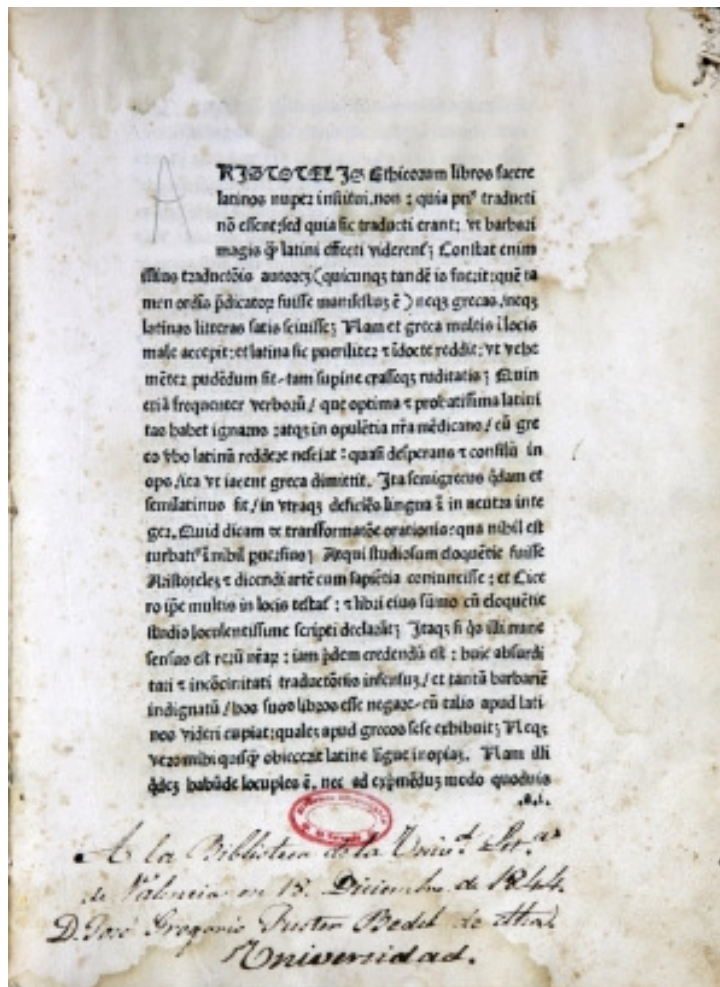 A
RISTOTELIS Ethicorum libros facere
latinos nuper institui, non : quia priꝰ traducti
nō essent: sed quia sic traducti erant: vt barbari
magis q̄ latini effecti viderenꞇ̃ Constat enim
illius traductōis autorē (quicunqꝫ tandē is fuerit: quē ta
men ordīs p̄dicatoꝝ fuisse manifestus ē) neqꝫ grecas, neqꝫ
latinas litteras satis sciuisse Nam et greca multis ī locis
male accepit: et latina sic pueriliter ⁊ īdocte reddit: vt vehe
mēter pudēdum sit tam supine crasseqꝫ ruditatis Quin
etiā frequenter verborū / que optima ⁊ probatissima latini
tas habet ignarus : atqꝫ in opulētia nr̄a mēdicans / cū gre
co v̄bo latinū reddere nesciat : quasi desperans ⁊ consilij in
ops / ita vt iacent greca dimittit. Ita semigrecus q̄dam et
semilatinus fit / in vtraqꝫ deficiēs lingua ī in neutra inte
ger. Quid dicam de transformatōe orationis: qua nihil est
turbatiꝰ ī nihil puersius Atqui studiosum eloquētie fuisse
Aristotelem ⁊ dicendi artē cum sapiētia coniunxisse : et Cice
ro ip̄e multis in locis testaꞇ̃ : ⁊ libri eius sūmo cū eloquētie
studio loculentissime scripti declarāt Itaqꝫ si q̄s illi nunc
sensus est reꝝ nr̄aꝝ : iam p̄dem credendū est : huic absurdi
tati ⁊ incōcinitati traductōis infensuꝫ / et tantā barbariē
indignatū / hos suos libros esse negare cū talis apud lati
nos videri cupiat: qualeꝫ apud grecos sese exhibuit Neqꝫ
vero mihi quisq̄ obiecerit latine līgue inopiaꝫ. Nam illi
q̄deꝫ habūde locuples ē. nec ad exp̄mēduꝫ modo quoduis
.a.i.
A la Biblioteca de la Univ.d Lit.a
de Valencia en 18 Diciembre de 1844
D. José Gregorio Fuster Bedel de dha
Universidad.